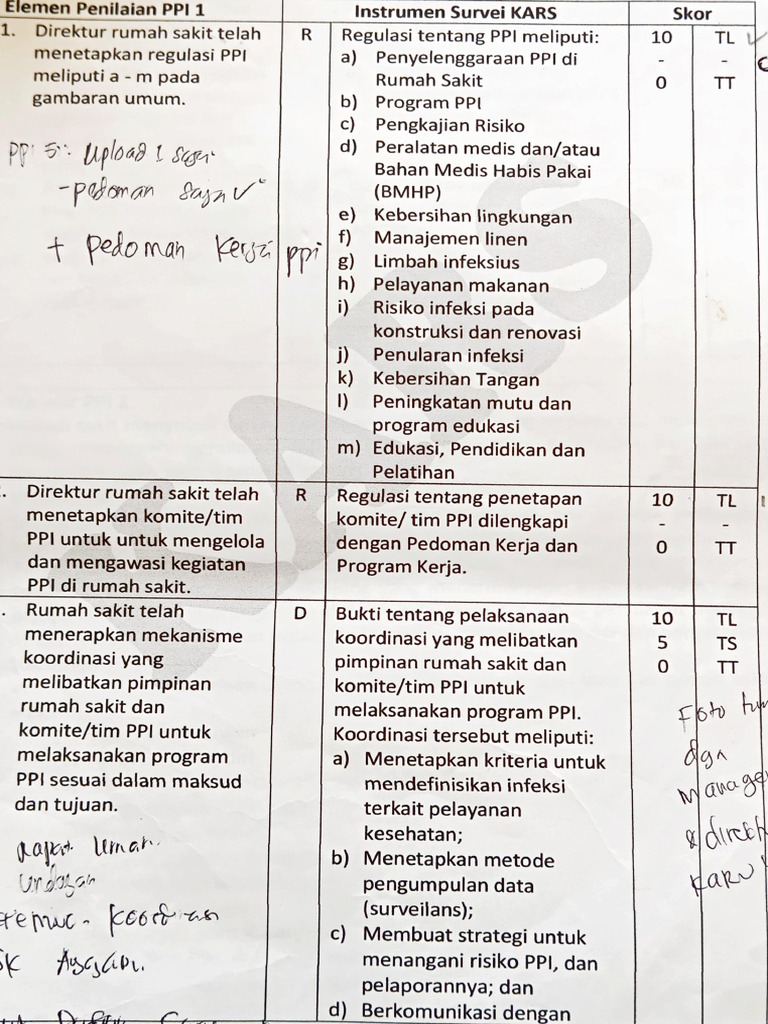 Elemen Penilaian PPI 1
Instrumen Survei KARS
Skor
1. Direktur rumah sakit telah
menetapkan regulasi PPI
meliputi a - m pada
gambaran umum.
PPI 5: Upload 1 saja
- pedoman saja ✓
+ pedoman kerja ppi
R
Regulasi tentang PPI meliputi:
a) Penyelenggaraan PPI di
Rumah Sakit
b) Program PPI
c) Pengkajian Risiko
d) Peralatan medis dan/atau
Bahan Medis Habis Pakai
(BMHP)
e) Kebersihan lingkungan
f) Manajemen linen
g) Limbah infeksius
h) Pelayanan makanan
i) Risiko infeksi pada
konstruksi dan renovasi
j) Penularan infeksi
k) Kebersihan Tangan
l) Peningkatan mutu dan
program edukasi
m) Edukasi, Pendidikan dan
Pelatihan
10 TL ✓
- -
0 TT
KARS
. Direktur rumah sakit telah
menetapkan komite/tim
PPI untuk untuk mengelola
dan mengawasi kegiatan
PPI di rumah sakit.
R
Regulasi tentang penetapan
komite/ tim PPI dilengkapi
dengan Pedoman Kerja dan
Program Kerja.
10 TL
- -
0 TT
. Rumah sakit telah
menerapkan mekanisme
koordinasi yang
melibatkan pimpinan
rumah sakit dan
komite/tim PPI untuk
melaksanakan program
PPI sesuai dalam maksud
dan tujuan.
Rapat
undangan
D
Bukti tentang pelaksanaan
koordinasi yang melibatkan
pimpinan rumah sakit dan
komite/tim PPI untuk
melaksanakan program PPI.
Koordinasi tersebut meliputi:
a) Menetapkan kriteria untuk
mendefinisikan infeksi
terkait pelayanan
kesehatan;
b) Menetapkan metode
pengumpulan data
(surveilans);
c) Membuat strategi untuk
menangani risiko PPI, dan
pelaporannya; dan
d) Berkomunikasi dengan
10 TL
5 TS
0 TT
Foto
dgn
manage
& direk
karu